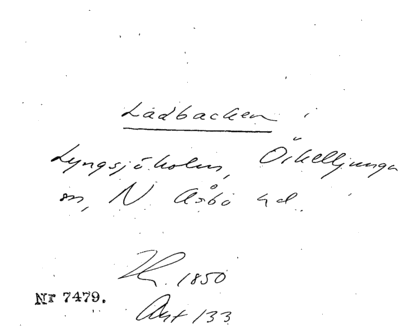 Ladbacken i
Lyngsjöholm, Örkelljunga
sn, N Åsbo hd.
1850
Nr 7479.
Akt 133